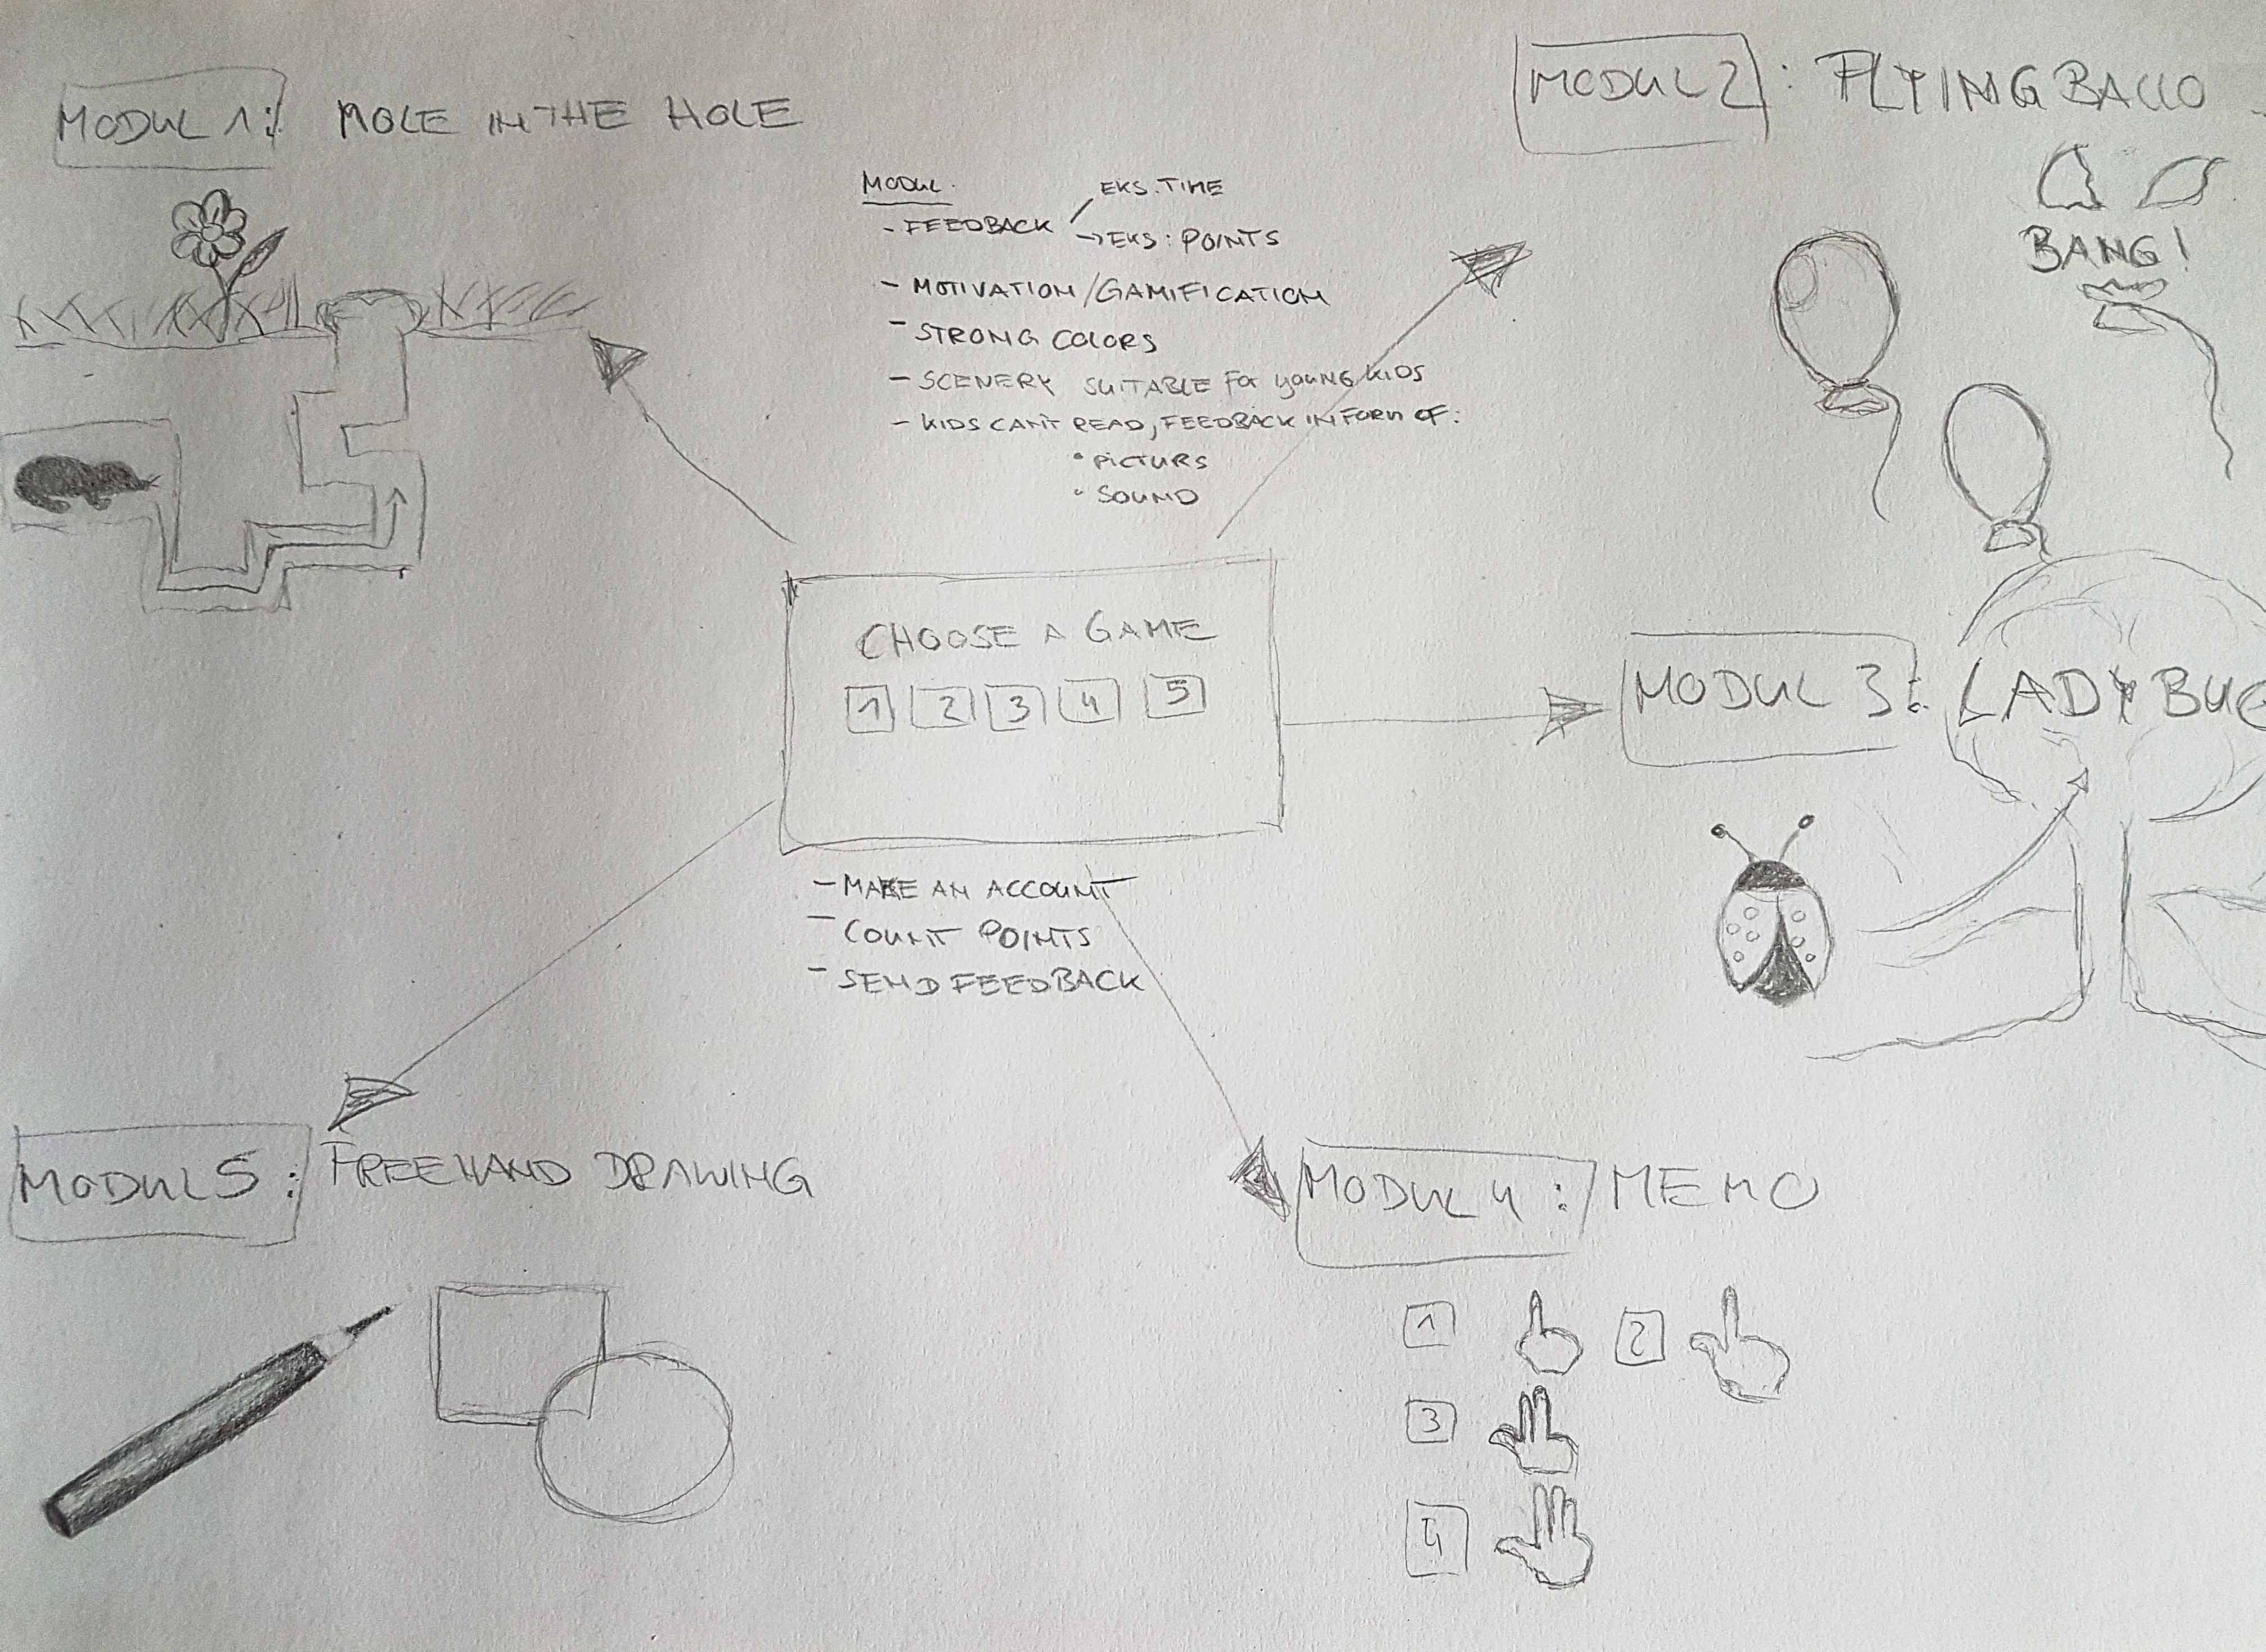 MODUL 1: MOLE IN THE HOLE
MODUL 2: FLYING BALLO
BANG!
MODUL.
- FEEDBACK
EKS. TIME
→ EKS: POINTS
- MOTIVATION/GAMIFICATION
- STRONG COLORS
- SCENERY SUITABLE FOR YOUNG KIDS
- KIDS CAN'T READ, FEEDBACK IN FORM OF:
• PICTURS
• SOUND
CHOOSE A GAME
1 2 3 4 5
- MAKE AN ACCOUNT
- COUNT POINTS
- SEND FEEDBACK
MODUL 3: LADYBUG
MODUL 5: FREEHAND DRAWING
MODUL 4: MEMO
1 2
3
4